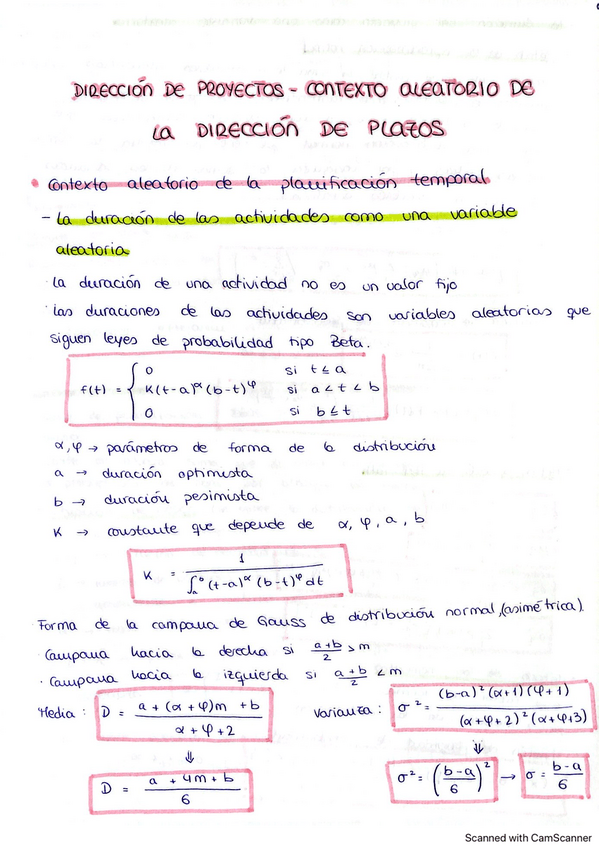 DIRECCIÓN DE PROYECTOS - CONTEXTO ALEATORIO DE
LA DIRECCIÓN DE PLAZOS
• Contexto aleatorio de la planificación temporal
- La duración de las actividades como una variable
aleatoria
· La duración de una actividad no es un valor fijo
· Las duraciones de las actividades son variables aleatorias que
siguen leyes de probabilidad tipo Beta.
f(t) = { 0 si t ≤ a
K(t-a)^α (b-t)^φ si a < t < b
0 si b ≤ t
α, φ → parámetros de forma de la distribución
a → duración optimista
b → duración pesimista
K → constante que depende de α, φ, a, b
K = 1 / ∫ₐᵇ (t-a)^α (b-t)^φ dt
Forma de la campana de Gauss de distribución normal (asimétrica).
· Campana hacia la derecha si (a+b)/2 > m
· Campana hacia la izquierda si (a+b)/2 < m
Media: D = (a + (α+φ)m + b) / (α+φ+2) Varianza: σ² = (b-a)² (α+1)(φ+1) / (α+φ+2)² (α+φ+3)
⇓ ⇓
D = (a + 4m + b) / 6 σ² = ((b-a)/6)² → σ = (b-a)/6
Scanned with CamScanner